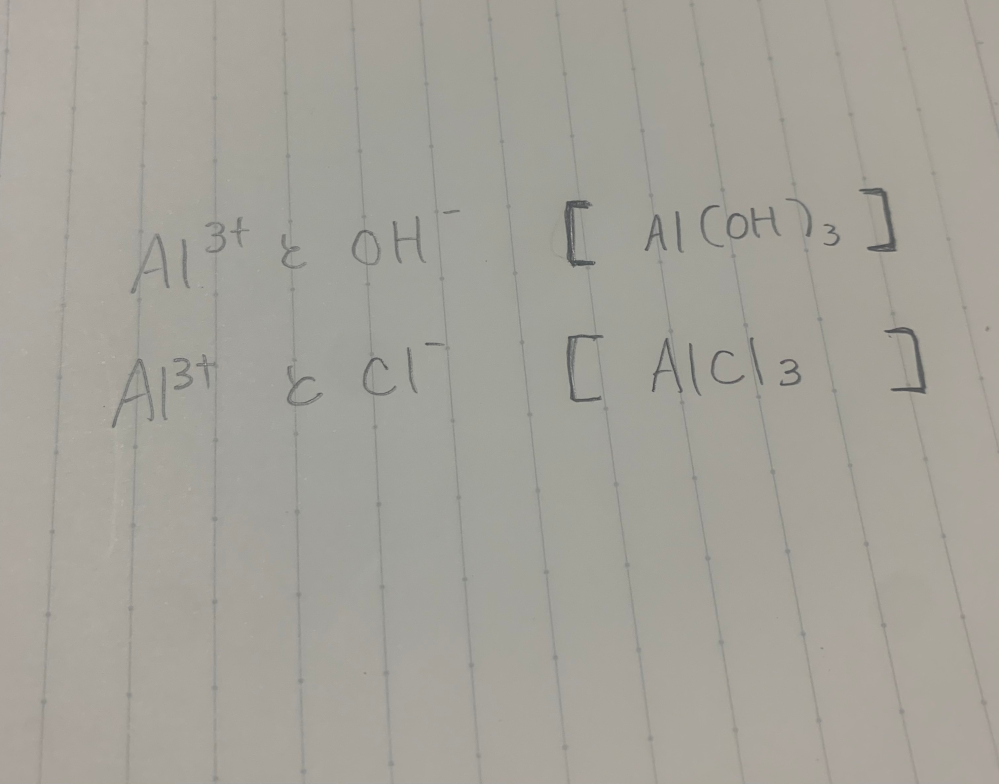 Al³⁺ と OH⁻ [ Al(OH)₃ ]
Al³⁺ と Cl⁻ [ AlCl₃ ]